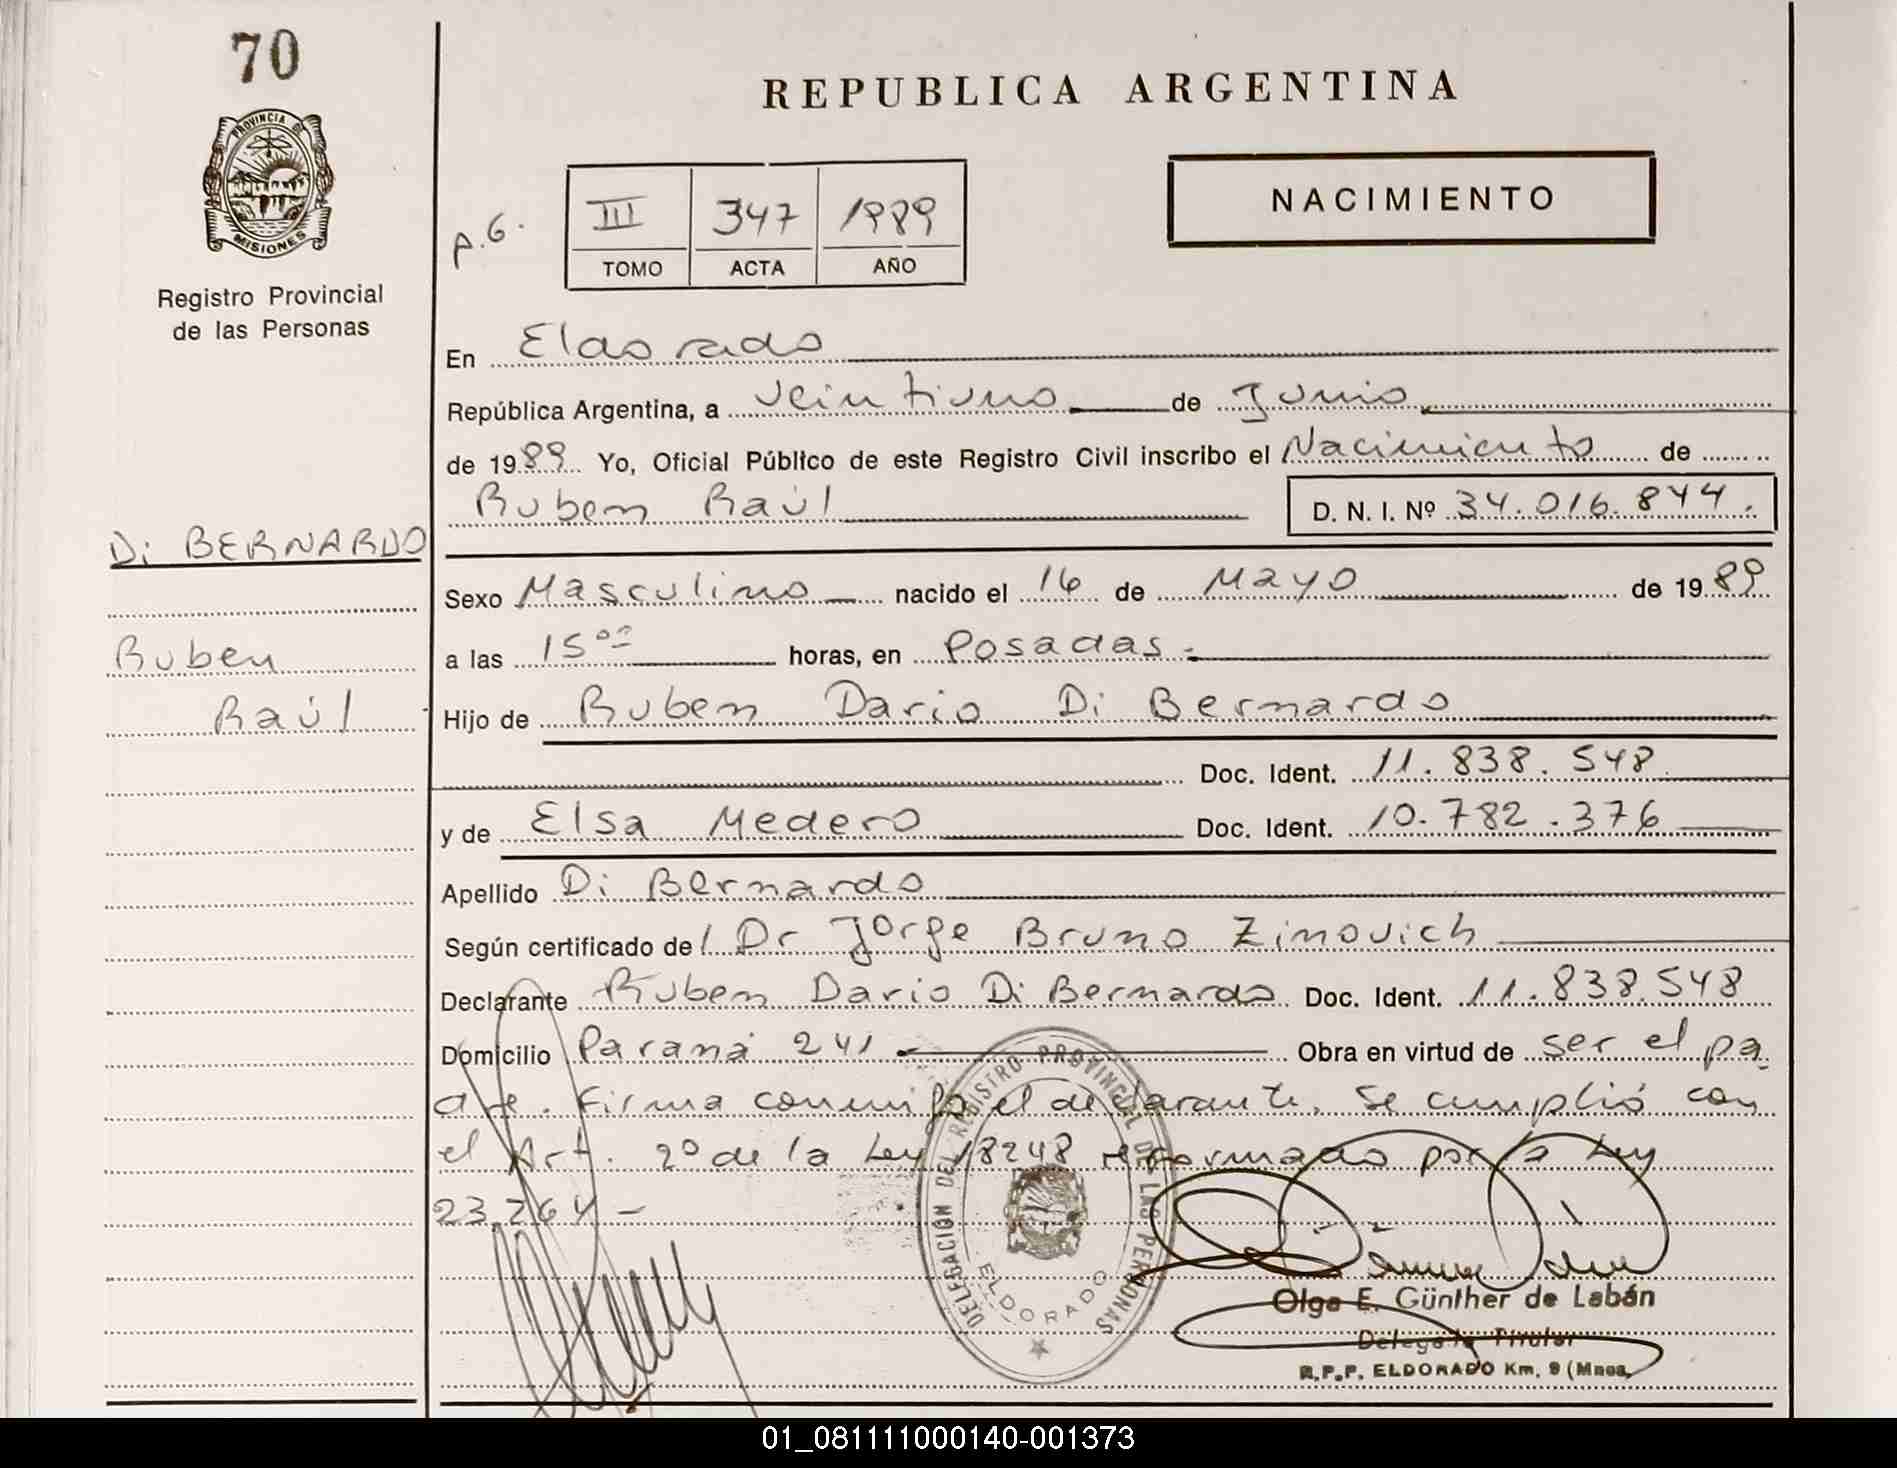 70
PROVINCIA DE
MISIONES
Registro Provincial
de las Personas
REPUBLICA ARGENTINA
NACIMIENTO
p.6.
III 347 1989
TOMO ACTA AÑO
En Eldorado
República Argentina, a veintiuno de Junio
de 1989 Yo, Oficial Público de este Registro Civil inscribo el Nacimiento de
Ruben Raúl
D. N. I. Nº 34.016.844.
Di BERNARDO
Ruben
Raúl
Sexo Masculino nacido el 16 de Mayo de 1989
a las 15⁰⁰ horas, en Posadas.
Hijo de Ruben Dario Di Bernardo
Doc. Ident. 11.838.548
y de Elsa Medero Doc. Ident. 10.782.376
Apellido Di Bernardo
Según certificado del Dr Jorge Bruno Zinovich
Declarante Ruben Dario Di Bernardo Doc. Ident. 11.838.548
Domicilio Paraná 241 Obra en virtud de ser el pa
dre. Firma conmigo el declarante. Se cumplió con
el Art. 2º de la Ley 18248 reformado por la Ley
23.264 -
DELEGACIÓN DEL REGISTRO PROVINCIAL DE LAS PERSONAS
ELDORADO
Olga E. Günther de Labán
Delegada Titular
R.P.P. ELDORADO Km. 9 (Mnes.
01_081111000140-001373